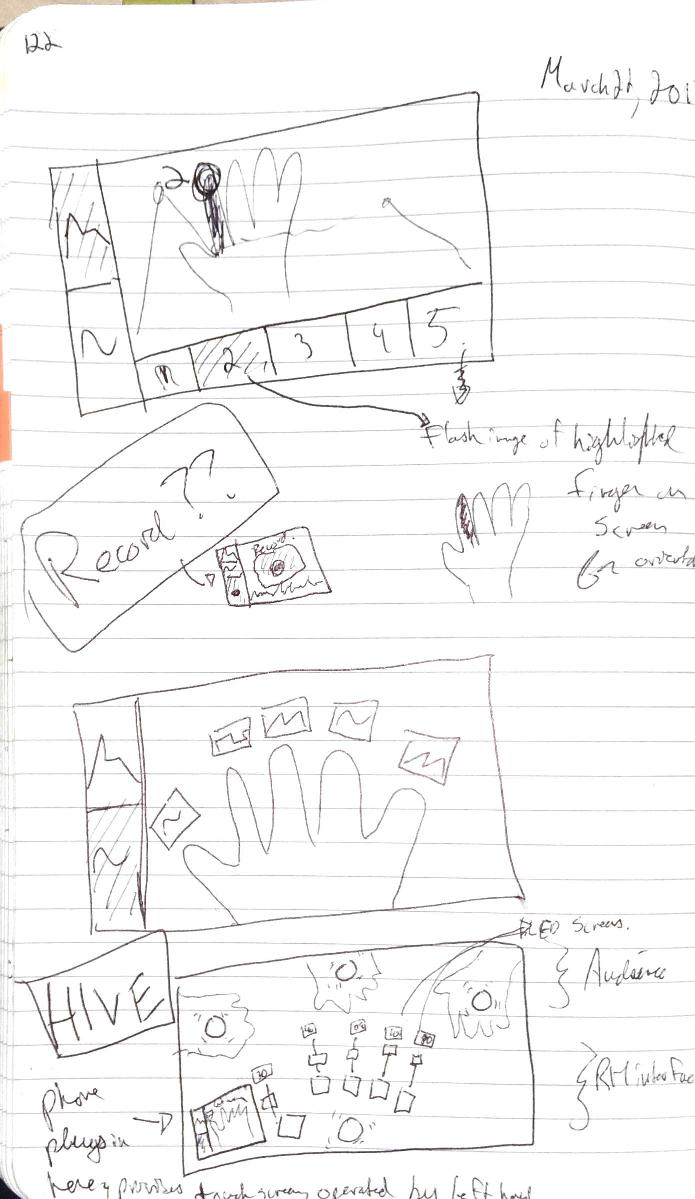 122
March 22, 201
2
1 2 3 4 5
Flash image of highlighted
finger on
screen
for
Record??
Record
HIVE
OLED Screens.
Audience
RH interface
phone
plugs in
here & provides touch screen operated by left hand